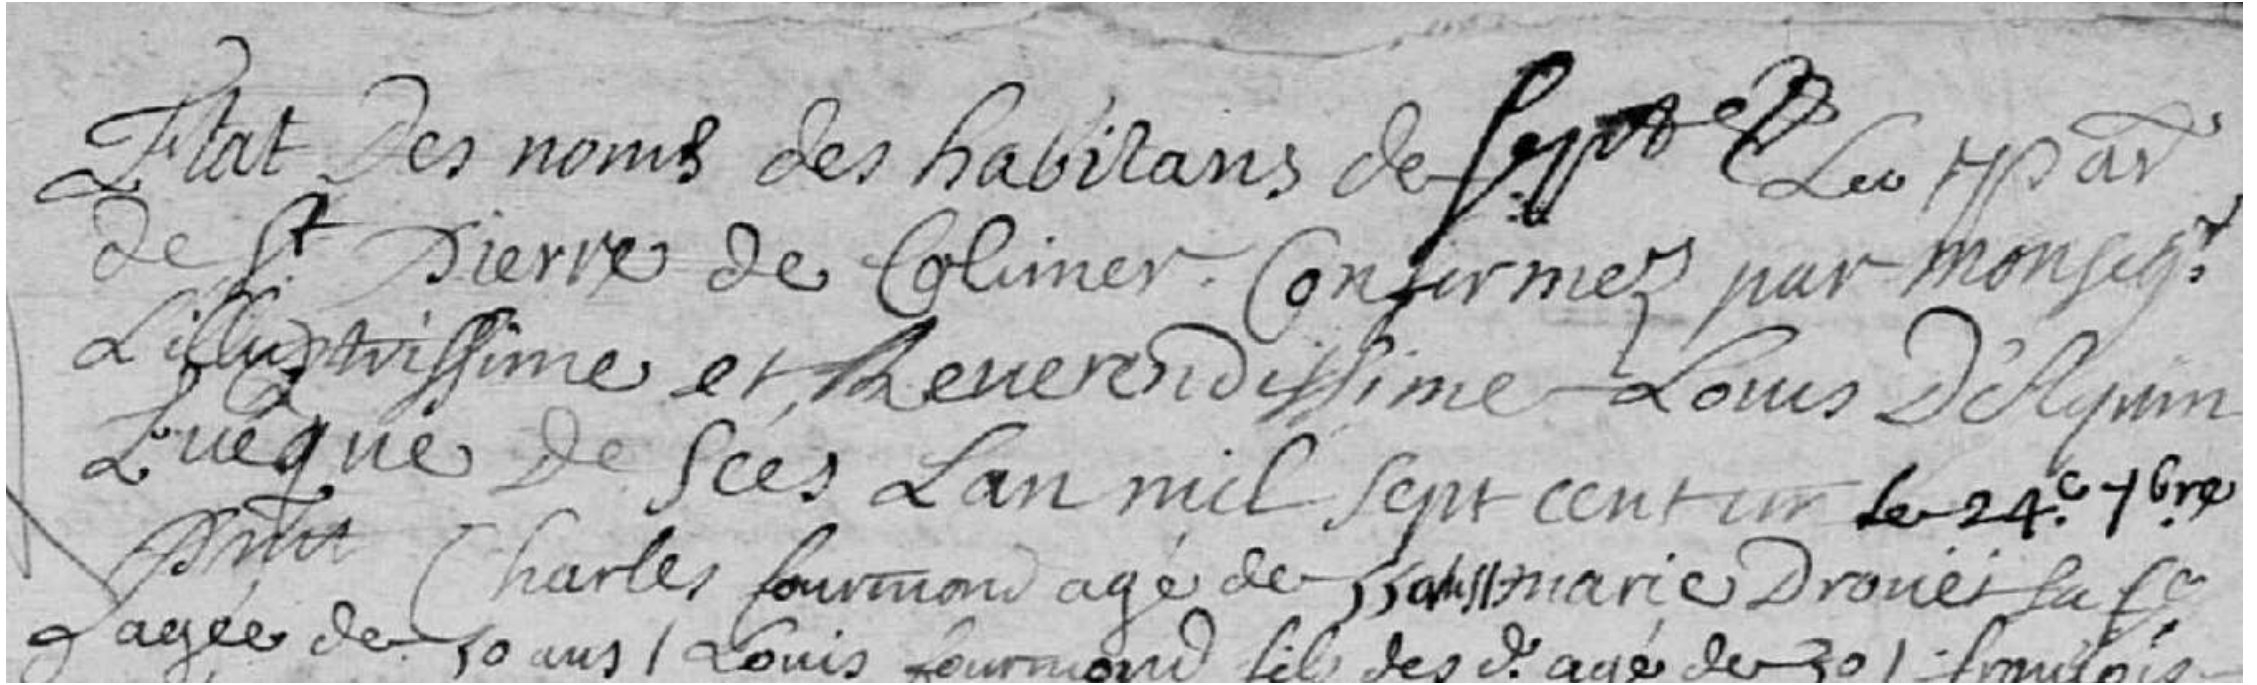 Etat Des noms des habitans de La par
de St Pierre de Colimer. Confirmez par monseigr
Lillustrissime et Reuerendissime Louis D'Aquin
Eueque de Sees Lan mil sept cent un le 24e 7bre
Charles fourmond agé de 55 ans marie Drouet sa fe
agée de 50 ans / Louis fourmond fils des d. agé de 30 / francois